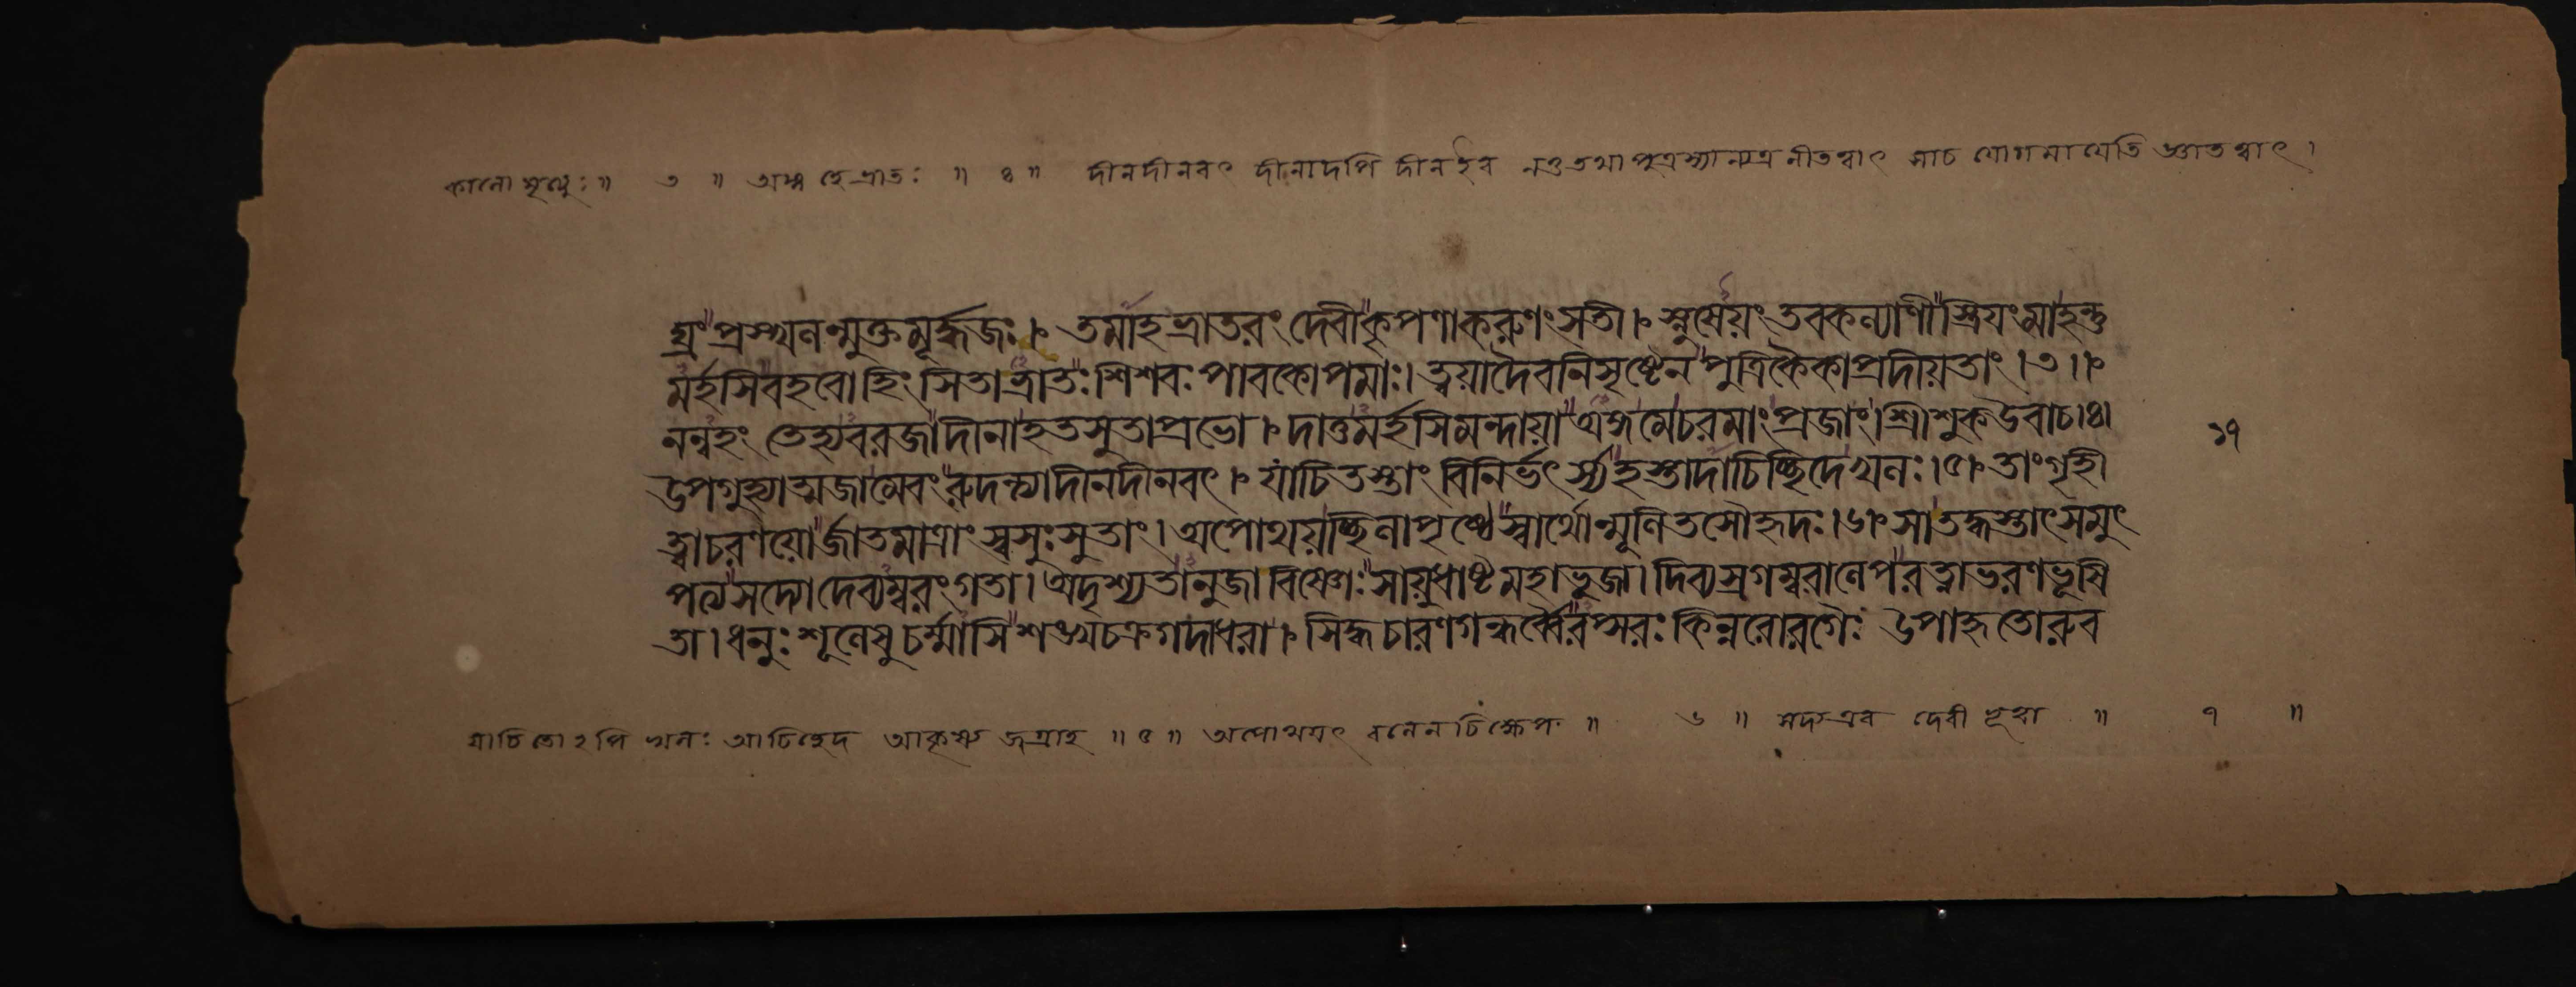 কালো মৃত্যুঃ ॥ ৩ ॥ অম্ব হে ভ্রাতঃ ॥ ৪ ॥ দীনদীনবৎ দীনাদপি দীন ইব নতু তথা পুত্রস্যান্যত্র নীতত্বাৎ সাচ যোগমায়েতি জ্ঞাতত্বাৎ ।
গ্রং প্রস্খলন্মুক্তমূর্দ্ধজঃ । তমাহভ্রাতরং দেবীকৃপণাকরুণংসতী । স্নুষেয়ং তবকল্যাণীস্ত্রিয়ংমাহন্তু
মর্হসিবহবোহিংসিতাভ্রাতঃশিশবঃপাবকোপমাঃ। ত্বয়াদৈবনিসৃষ্টেনপুত্রিকৈকাপ্রদিয়তাং ।৩।।
নন্বহং তেহ্যবরজাদীনাহতসুতাপ্রভো । দাতুমর্হসিমন্দায়াঅঙ্গমেচরমাংপ্রজাং।শ্রীশুকউবাচ।৪।
উপগুহ্যাত্মজামেবংরুদন্ত্যাদীনদীনবৎ । যাচিতস্তাং বিনির্ভৎর্স্যহস্তাদাচিচ্ছিদেখলঃ।৫। তাংগৃহী
ত্বাচরণয়োর্জাতমাত্রাংস্বসুঃসুতাং। অপোথয়চ্ছিলাপৃষ্ঠেস্বার্থোন্মূলিতসৌহৃদঃ।৬। সাতদ্ধস্তাৎসমুৎ
পত্যসদ্যোদেব্যম্বরংগতা। অদৃশ্যতানুজাবিষ্ণোঃসায়ুধাষ্টমহাভুজা। দিব্যস্রগম্বরালেপরত্নাভরণভূষি
তা। ধনুঃশূলেষুচর্ম্মাসিশঙ্খচক্রগদাধরা। সিদ্ধচারণগন্ধর্ব্বৈরপ্সরঃকিন্নরোরগৈঃ উপাহৃতোরুব
১৭
যাচিতোঽপি খলঃ আচিচ্ছিদে আকৃষ্য জগ্রাহ ॥ ৫ ॥ অপোথয়ৎ বলেন চিক্ষেপ ॥ ৬ ॥ সদ্য এব দেবী ভূত্বা ॥ ৭ ॥